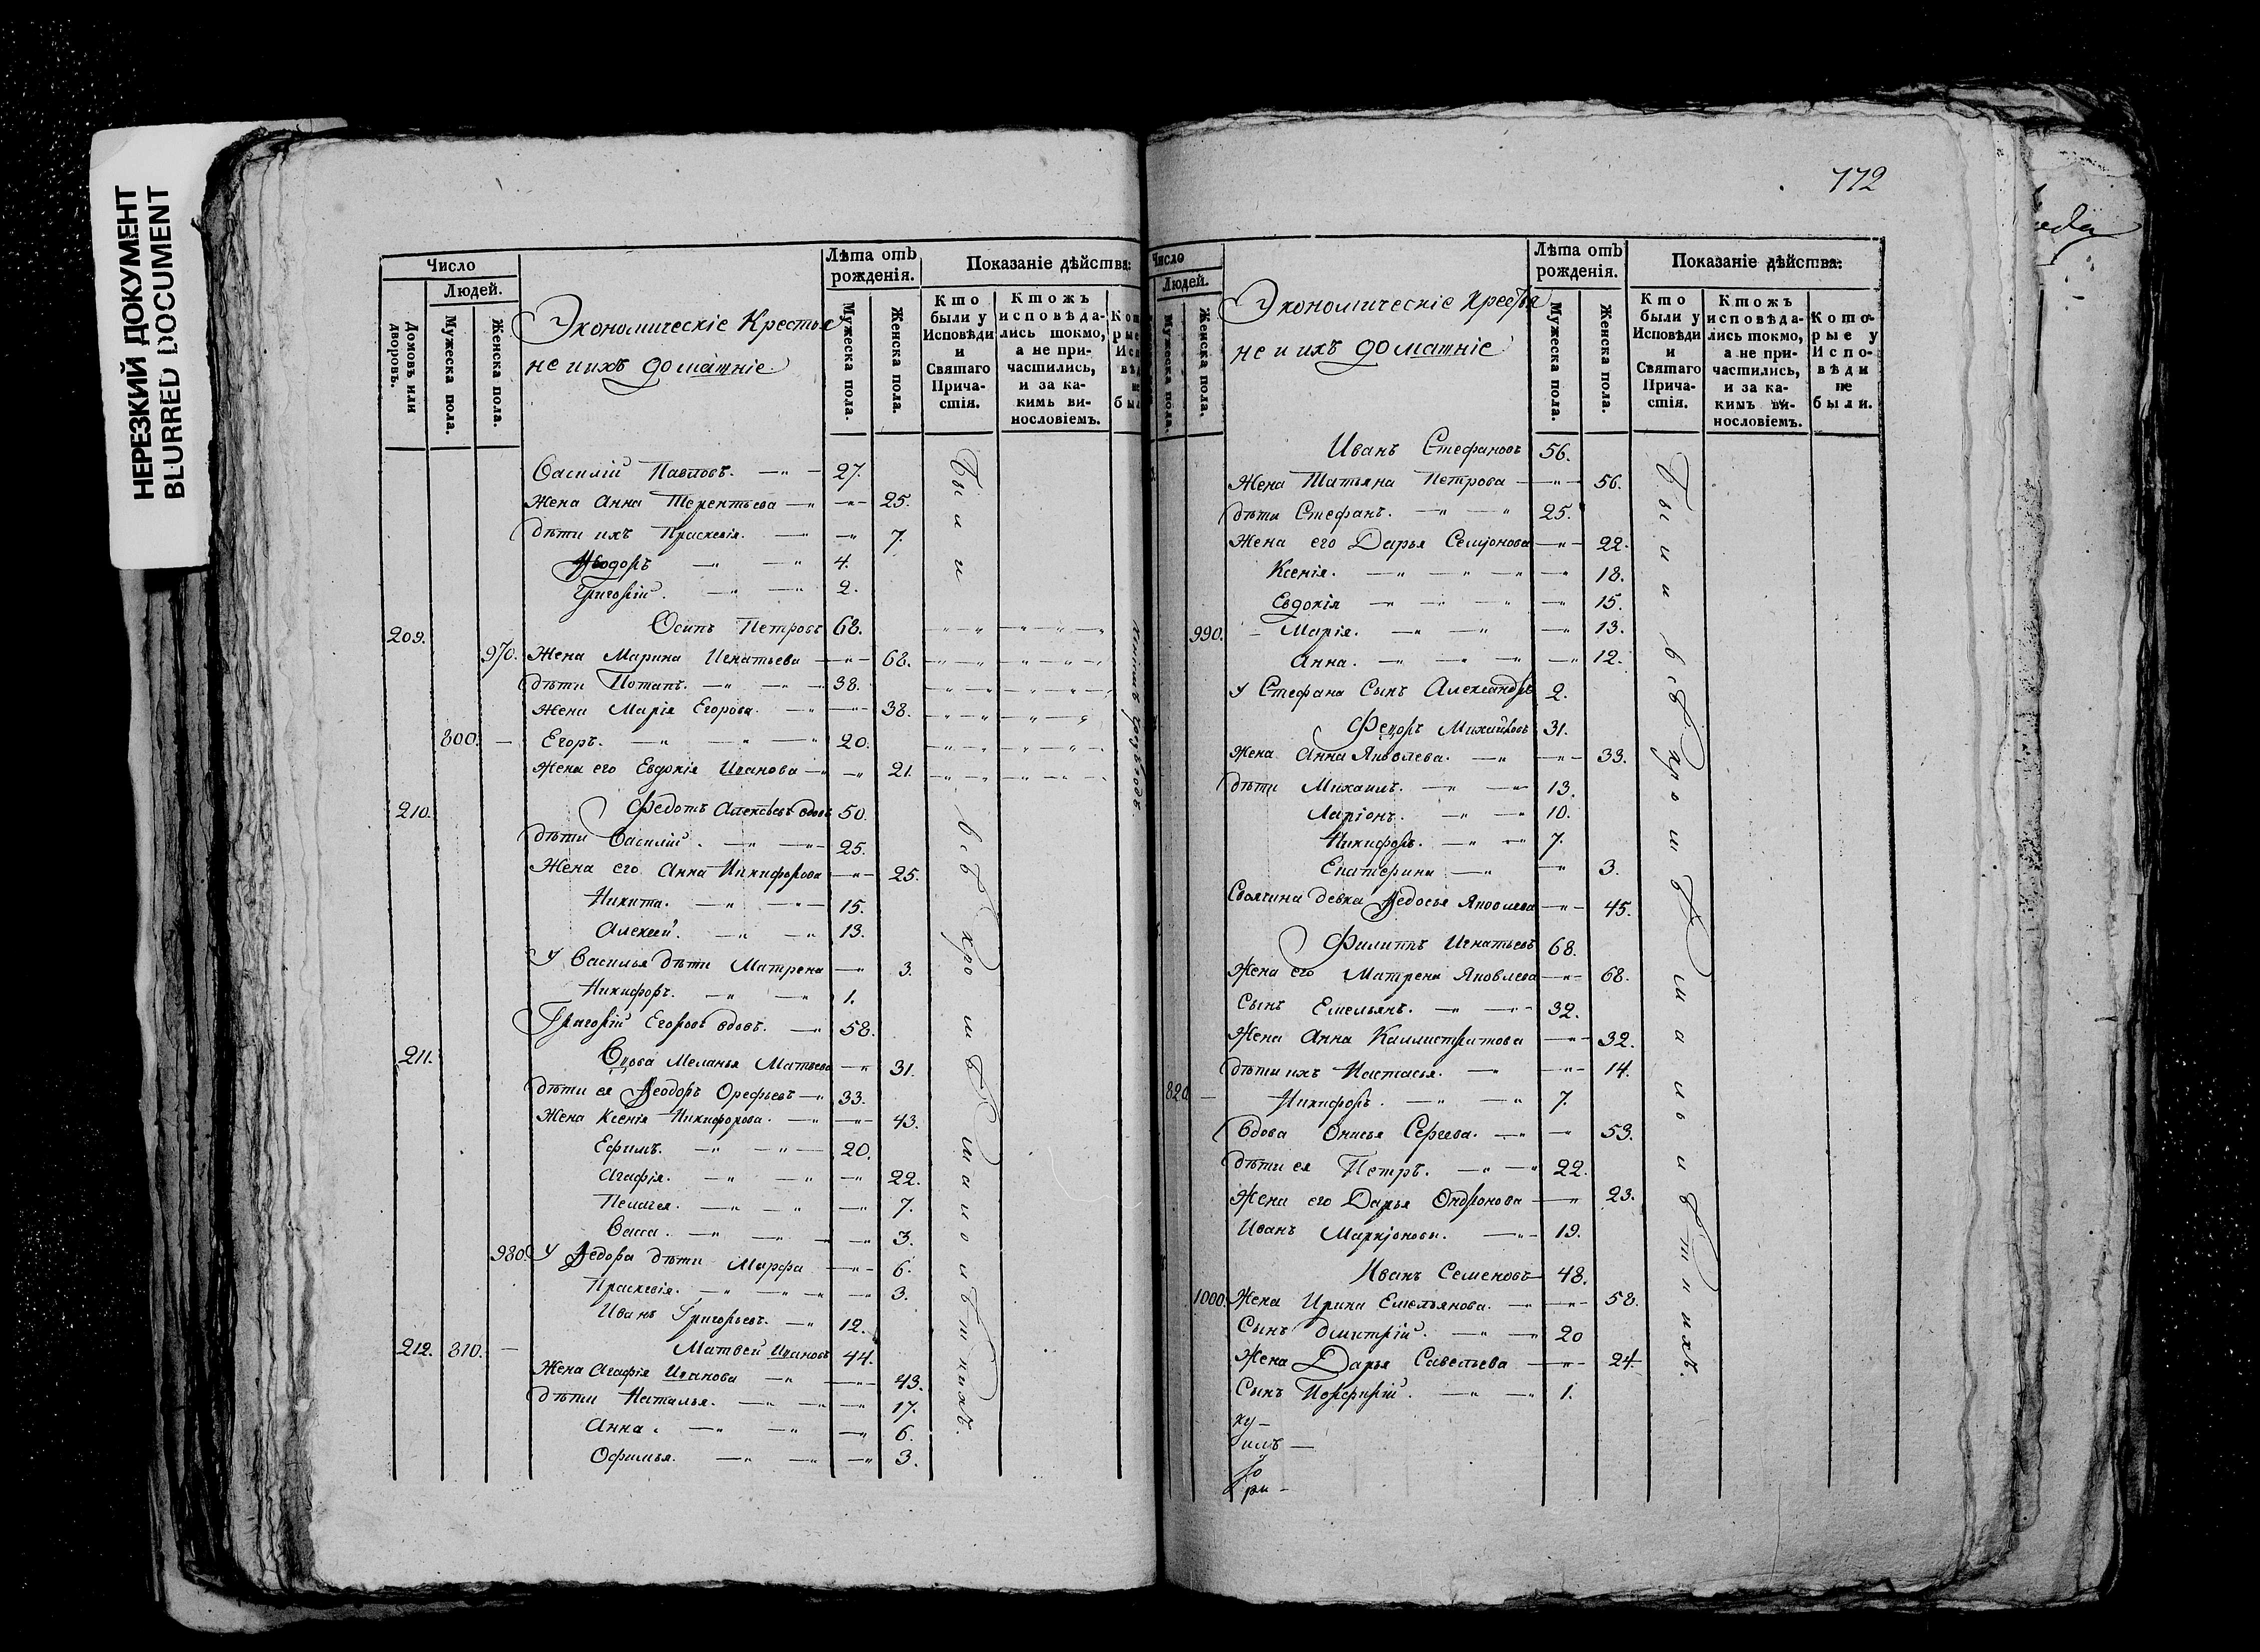 НЕРЕЗКИЙ ДОКУМЕНТ
BLURRED DOCUMENT
Число
Людей.
Домовъ или дворовъ.
Мужеска пола.
Женска пола.
Экономическіе Крестья
не и ихъ домашніе
Лѣта отъ рожденія.
Мужеска пола.
Женска пола.
Показаніе дѣйства:
Кто были у Исповѣди и Святаго Причастія.
Ктожъ исповѣдались токмо, а не причастились, и за какимъ винословіемъ.
Василій Павловъ. 27.
Жена Анна Терентьева 25.
Дѣти ихъ Праскевія. 7.
Ѳеодоръ 4.
Григорій. 2.
209. Осипъ Петровъ 68.
970. Жена Марина Игнатьева 68.
Дѣти Потапъ. 38.
Жена Марія Егорова. 38.
800. Егоръ. 20.
Жена его Евдокія Иванова 21.
210. Федотъ Алексѣевъ вдовъ 50.
Дѣти Василій. 25.
Жена его Анна Никифорова 25.
Никита. 15.
Алексей. 13.
У Василья дѣти Матрена 3.
Никифоръ. 1.
Григорій Егоровъ вдовъ. 58.
211. Вдова Меланья Матвеева 31.
Дѣти ея Ѳеодоръ Орефьевъ 33.
Жена Ксенія Никифорова. 43.
Ефимъ. 20.
Агафія. 22.
Пелагея. 7.
Васса. 3.
980. У Ѳедора дѣти Марфа 6.
Праскевія. 3.
Иванъ Григорьевъ. 12.
212. 810. Матвей Ивановъ 44.
Жена Агафія Иванова 43.
Дѣти Наталья. 17.
Анна. 6.
Офимья. 3.
Были
всѣ кромѣ малолѣтнихъ.
772
Число
Людей.
Мужеска пола.
Женска пола.
Экономическіе Крестья
не и ихъ домашніе
Лѣта отъ рожденія.
Мужеска пола.
Женска пола.
Показаніе дѣйства:
Кто были у Исповѣди и Святаго Причастія.
Ктожъ исповѣдались токмо, а не причастились, и за какимъ винословіемъ.
Которые у Исповѣди не были.
Иванъ Стефановъ 56.
Жена Татьяна Петрова 56.
Дѣти Стефанъ. 25.
Жена его Дарья Семіонова 22.
Ксенія. 18.
Евдокія 15.
990. Марія. 13.
Анна. 12.
У Стефана Сынъ Александръ 2.
Федоръ Михайловъ 31.
Жена Анна Яковлева. 33.
Дѣти Михаилъ. 13.
Ларіонъ. 10.
Никифоръ. 7.
Екатерина 3.
Своячина девка Ѳедосья Яковлева 45.
Филиппъ Игнатьевъ 68.
Жена его Матрена Яковлева 68.
Сынъ Емельянъ. 32.
Жена Анна Каллистратова 32.
Дѣти ихъ Настасья. 14.
820 Никифоръ. 7.
Вдова Онисья Сергеева. 53.
Дѣти ея Петръ. 22.
Жена его Дарья Ондронова 23.
Иванъ 19.
Иванъ Семеновъ 48.
1000. Жена Ирина Емельянова. 58.
Сынъ Дмитрій. 20
Жена Дарья Савельева 24.
Сынъ Порфирій. 1.
Были всѣ кромѣ малолѣтнихъ.